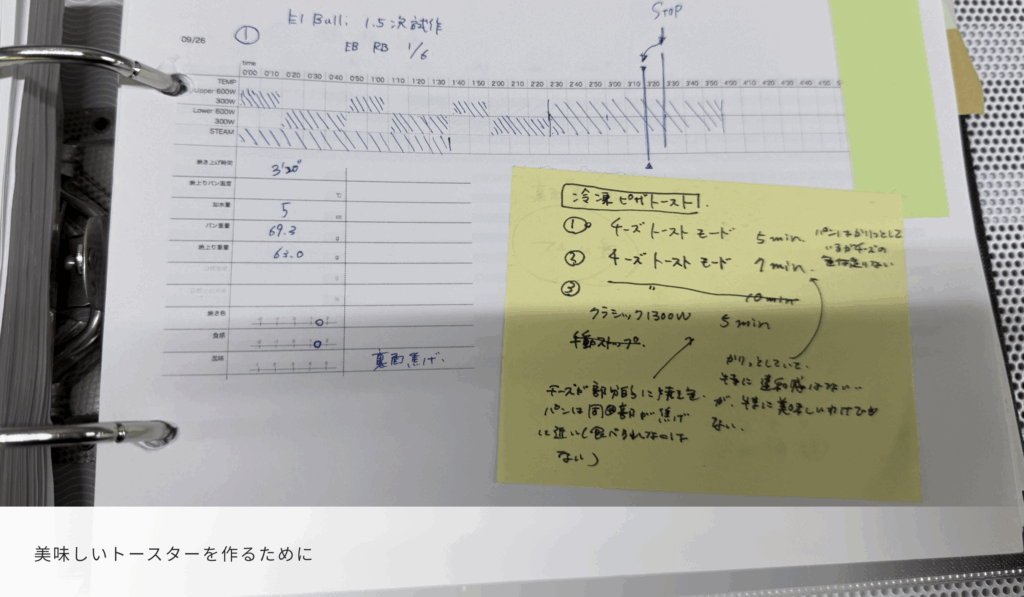 El Bulli 1.5次試作
Stop
09/26
①
EB RB 1/6
time
TEMP 0'00 0'10 0'20 0'30 0'40 0'50 1'00 1'10 1'20 1'30 1'40 1'50 2'00 2'10 2'20 2'30 2'40 2'50 3'00 3'10 3'20 3'30 3'40 3'50 4'00 4'10 4'20 4'30 4'40 4'50 4'55
Upper 600W
300W
Lower 600W
300W
STEAM
焼き上げ時間 3'20"
焼上りパン温度 ℃
加水量 5
パン重量 69.3 g
焼上り重量 63.0 g
焼き色
食感
風味 裏面焦げ.
冷凍ピザトースト
① チーズトーストモード 5min.
パンはかりっとして
いるがチーズの
② チーズトーストモード 7min.
③ 〃 10min
クラシック1300W 5min
手動ストップ.
チーズが部分的に
パンは 部が焦げ
に近い(食べられなくは
ない)
かりっとしていて、
特に違和感はない
が、特に美味しいわけでも
ない.
美味しいトースターを作るために